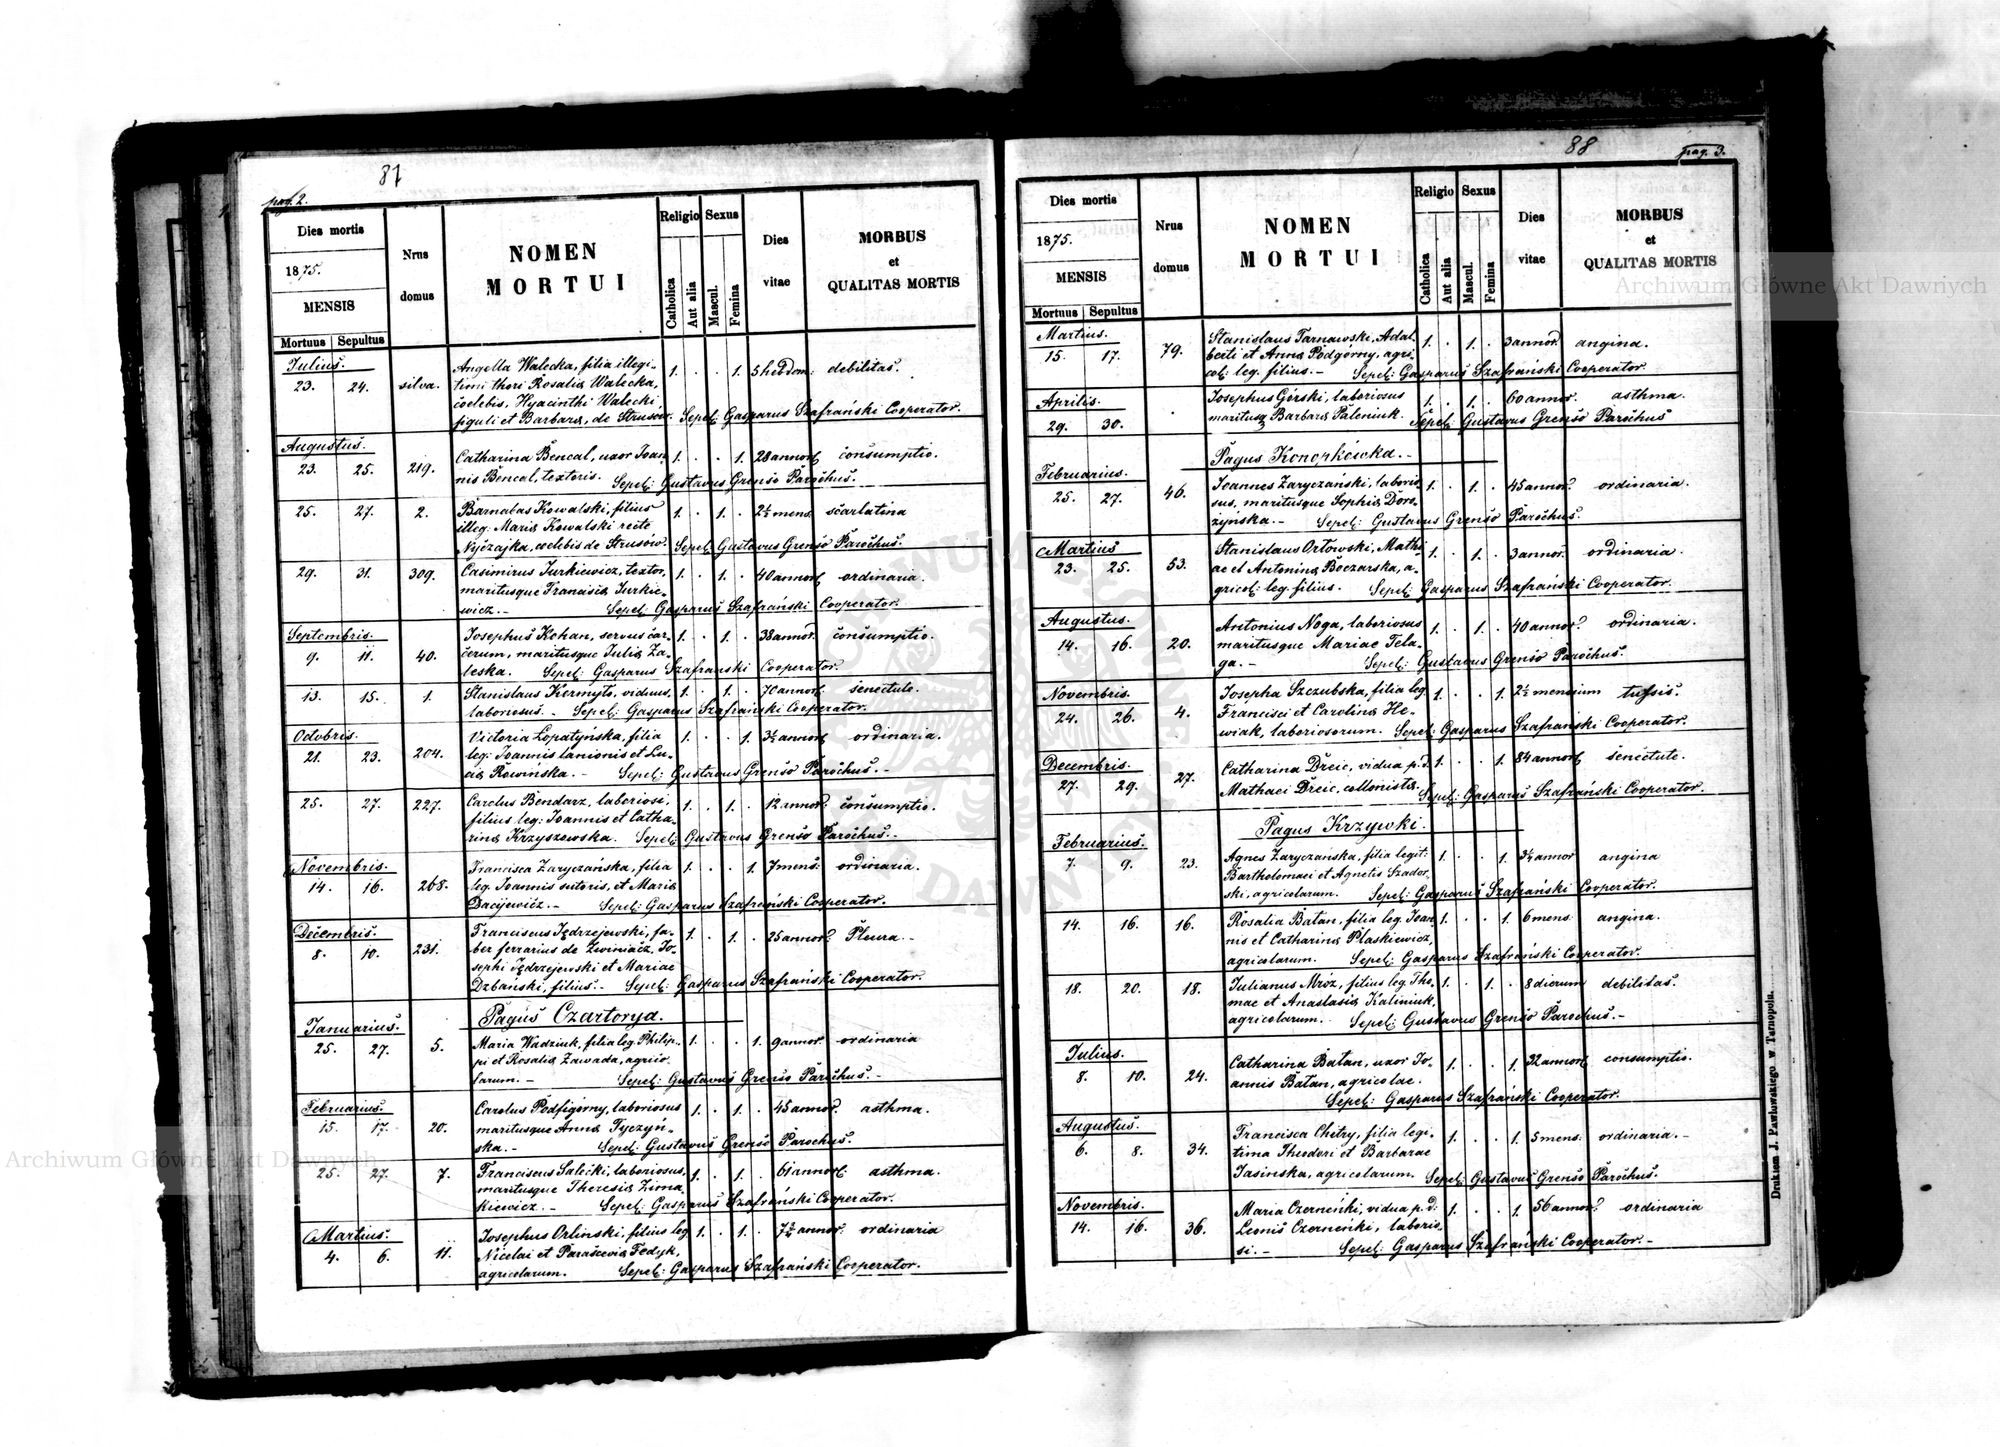 87
pag. 2.
Dies mortis
1875.
MENSIS
Mortuus Sepultus
Nrus domus
NOMEN
MORTUI
Religio
Catholica
Aut alia
Sexus
Mascul.
Femina
Dies vitae
MORBUS
et
QUALITAS MORTIS
Julius.
23. 24. silva. Angella Walecka, filia illegi- 1. . . 1. 5 hebdom: debilitas.
timi thori Rosaliæ Walecka,
cœlebis, Hyacinthi Walecki
figuli et Barbaræ, de Strusów. Sepel: Gasparus Szafrański Cooperator.
Augustus.
23. 25. 219. Catharina Bencal, uxor Joan- 1. . . 1. 28 annor consumptio.
nis Bencal, textoris. Sepel: Gustavus Grenšo Parochus.
25. 27. 2. Barnabas Kowalski, filius 1. . 1. . 2½ mens: scarlatina
illeg. Mariæ Kowalski recte
Nyczajka, cœlebis de Strusów. Sepel: Gustavus Grenšo Parochus.
29. 31. 309. Casimirus Jurkiewicz, textor, 1. . 1. . 40 annor ordinaria.
maritusque Jurkie-
wicz. - Sepel: Gasparus Szafrański Cooperator.
Septembris.
9. 11. 40. Josephus Kohan, servus car- 1. . 1. . 38 annor. consumptio.
cerum, maritusque Juliæ Za-
leska. Sepel: Gasparus Szafrański Cooperator.
13. 15. 1. Stanislaus Kermyto, viduus, 1. . 1. . 70 annor: senectute.
laboriosus. - Sepel: Gasparus Szafrański Cooperator.
Octobris.
21. 23. 204. Victoria Lopatyńska, filia 1. . . 1. 3½ annor ordinaria.
leg: Joannis lanionis et Lu-
ciæ Rowińska. - Sepel: Gustavus Grenšo Parochus. -
25. 27. 227. Carolus Bendarz, laboriosi, 1. . 1. . 12 annor: consumptio.
filius leg: Joannis et Catha-
rinæ Krzyszowska. Sepel: Gustavus Grenšo Parochus. -
Novembris.
14. 16. 268. Francisca Zaryczańska, filia 1. . . 1. 7 mens: ordinaria.
leg. Joannis sutoris, et Mariæ
Dacijewicz. - Sepel: Gasparus Szafrański Cooperator.
Decembris.
8. 10. 231. Franciscus Jędrzejewski, fa- 1. . 1. . 25 annor. Pleura. -
ber ferrarius de Zwiniacz, Jo-
sephi Jędrzejewski et Mariae
Dzbański, filius. - Sepel: Gasparus Szafrański Cooperator.
Pagus Czartorya.
Januarius.
25. 27. 5. Maria Wadziuk, filia leg. Philip- 1. . . 1. 9 annor. ordinaria
pi et Rosaliæ Zawada, agrico-
larum. - Sepel: Gustavus Grenšo Parochus. -
Februarius.
15. 17. 20. Carolus Podfigórny, laboriosus 1. . 1. . 45 annor. asthma.
maritusque Annæ Tyczyń-
ska. - Sepel: Gustavus Grenšo Parochus.
25. 27. 7. Franciscus Salciki, laboriosus, 1. . 1. . 61 annor. asthma.
maritusque Theresiæ Zima-
kiewicz. - Sepel: Gasparus Szafrański Cooperator.
Martius.
4. 6. 11. Josephus Orlinski, filius leg 1. . 1. . 7½ annor: ordinaria
Nicolai et Parasceviæ Fedyk,
agricolarum. Sepel: Gasparus Szafrański Cooperator.
88
pag. 3.
Dies mortis
1875.
MENSIS
Mortuus Sepultus
Nrus domus
NOMEN
MORTUI
Religio
Catholica
Aut alia
Sexus
Mascul.
Femina
Dies vitae
MORBUS
et
QUALITAS MORTIS
Martius.
15. 17. 79. Stanislaus Tarnawski, Adal- 1. . 1. . 3 annor. angina.
berti et Annæ Podgorny, agri-
col: leg. filius. - Sepel: Gasparus Szafrański Cooperator.
Aprilis.
29. 30. . Josephus Górski, laboriosus 1. . 1. . 60 annor. asthma.
maritusq Barbaræ Paleniuk. Sepel: Gustavus Grenšo Parochus
Pagus Konopkówka. -
Februarius.
25. 27. 46. Joannes Zaryczański, laborio- 1. . 1. . 45 annor. ordinaria.
sus, maritusque Sophiæ Doro-
zynska. - Sepel: Gustavus Grenšo Parochus.
Martius
23. 25. 53. Stanislaus Orłowski, Mathi- 1. . 1. . 3 annor. ordinaria.
ae et Antoninæ Boczarska, a-
gricol: leg. filius. Sepel: Gasparus Szafrański Cooperator.
Augustus.
14. 16. 20. Antonius Noga, laboriosus 1. . 1. . 40 annor. ordinaria.
maritusque Mariae Tela-
ga. - Sepel: Gustavus Grenšo Parochus.
Novembris.
24. 26. 4. Josepha Szczubska, filia leg 1. . . 1. 2½ mensium tussis.
Francisci et Carolinæ He-
wiak, laboriosorum. Sepel: Gasparus Szafrański Cooperator.
Decembris.
27. 29. 27. Catharina Dreic, vidua p.d. 1. . . 1. 84 annor senectute.
Mathaei Dreic, collonistæ. Sepel: Gasparus Szafrański Cooperator.
Pagus Krzywki.
Februarius.
7. 9. 23. Agnes Zaryczańska, filia legit: 1. . . 1. 3½ annor angina
Bartholomaei et Agnetis Szador-
ski, agricolarum. Sepel: Gasparus Szafrański Cooperator.
14. 16. 16. Rosalia Batan, filia leg. Joan- 1. . . 1. 6 mens: angina.
nis et Catharinæ Plaskiewicz,
agricolarum. Sepel: Gasparus Szafrański Cooperator.
18. 20. 18. Julianus Mróz, filius leg. Tho- 1. . 1. . 8 dierum debilitas.
mae et Anastasiæ Kaliniuk,
agricolarum. Sepel: Gustavus Grenšo Parochus. -
Julius.
8. 10. 24. Catharina Batan, uxor Jo- 1. . . 1. 32 annor consumptio.
annis Batan, agricolae.
Sepel: Gasparus Szafrański Cooperator.
Augustus.
6. 8. 34. Francisca Chetry, filia legi- 1. . . 1. 5 mens: ordinaria. -
tima Theodori et Barbarae
Jasinska, agricolarum. Sepel: Gustavus Grenšo Parochus.
Novembris.
14. 16. 36. Maria Czerneńki, vidua p.d: 1. . . 1. 56 annor. ordinaria
Leonis Czerneńki, laborio-
si. - Sepel: Gasparus Szafrański Cooperator. -
Drukiem J. Pawłowskiego w Tarnopolu.
Archiwum Główne Akt Dawnych
Archiwum Główne Akt Dawnych